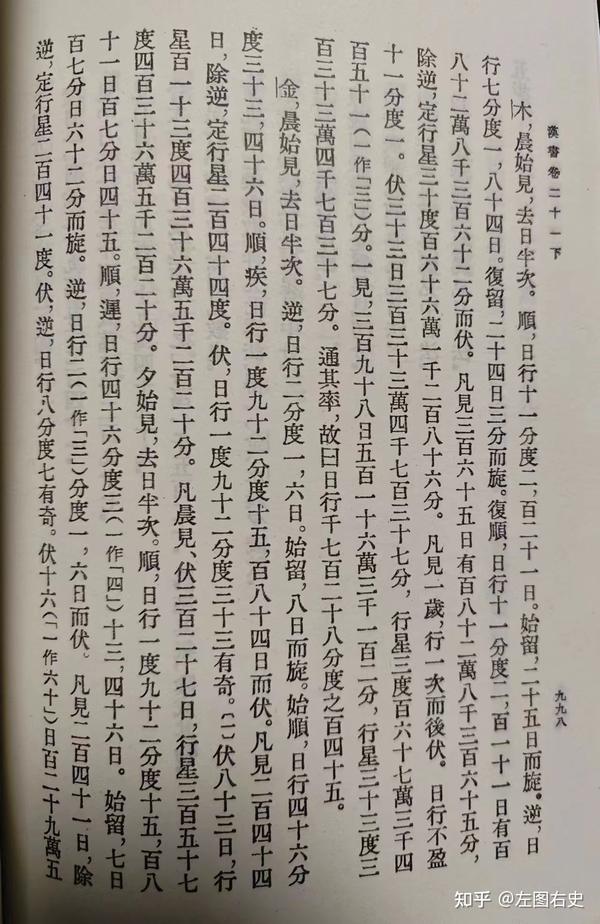 漢書卷二十一下
九九八
木,晨始見,去日半次。順,日行十一分度二,百二十一日。始留,二十五日而旋。逆,日
行七分度一,八十四日。復留,二十四日三分而旋。復順,日行十一分度二,百一十一日有百
八十二萬八千三百六十二分而伏。凡見三百六十五日有百八十二萬八千三百六十五分,
除逆,定行星三十度百六十六萬一千二百八十六分。凡見一歲,行一次而後伏。日行不盈
十一分度一。伏三十三日三百三十三萬四千七百三十七分,行星三度百六十七萬三千四
百五十一(一作「三」)分。一見,三百九十八日五百一十六萬三千一百二分,行星三十三度三
百三十三萬四千七百三十七分。通其率,故曰日行千七百二十八分度之百四十五。
金,晨始見,去日半次。逆,日行二分度一,六日。始留,八日而旋。始順,日行四十六分
度三十三,四十六日。順,疾,日行一度九十二分度十五,百八十四日而伏。凡見二百四十四
日,除逆,定行星二百四十四度。伏,日行一度九十二分度三十三有奇。〔一〕伏八十三日,行
星百一十三度四百三十六萬五千二百二十分。凡晨見、伏三百二十七日,行星三百五十七
度四百三十六萬五千二百二十分。夕始見,去日半次。順,日行一度九十二分度十五,百八
十一日百七分日四十五。順,遲,日行四十六分度三(一作「四」)十三,四十六日。始留,七日
百七分日六十二分而旋。逆,日行二(一作「三」)分度一,六日而伏。凡見二百四十一日,除
逆,定行星二百四十一度。伏,逆,日行八分度七有奇。伏十六(「一作六十」)日百二十九萬五
知乎 @左图右史